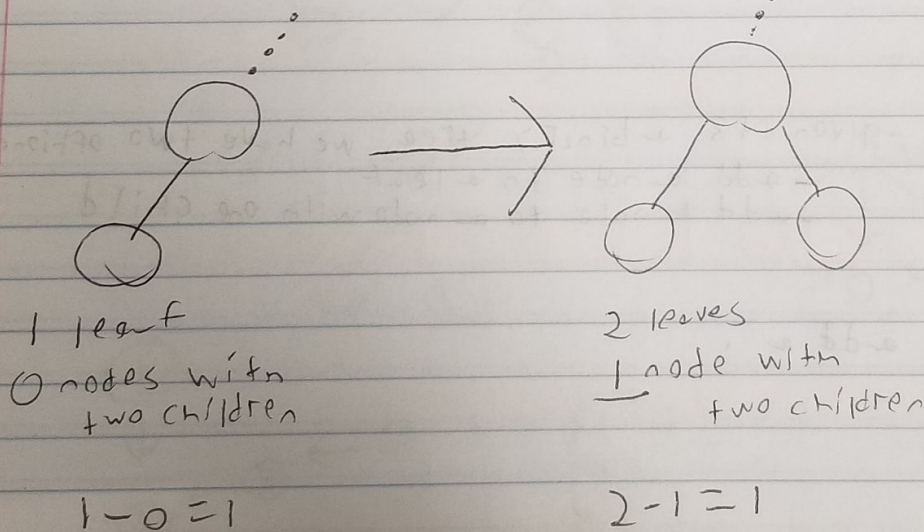 1 leaf
0 nodes with
two children
1 - 0 = 1
2 leaves
1 node with
two children
2 - 1 = 1